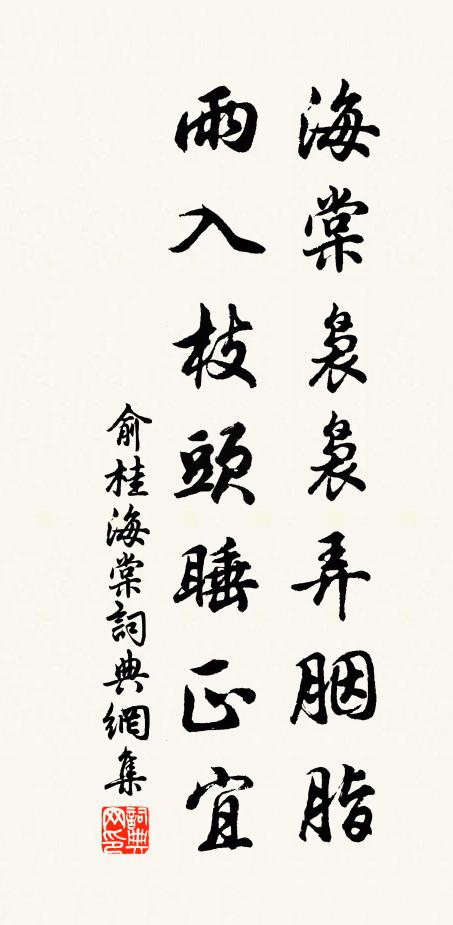 海棠裊裊弄胭脂
雨入枝頭睡正宜
俞桂海棠詞典網集
詞典
网印